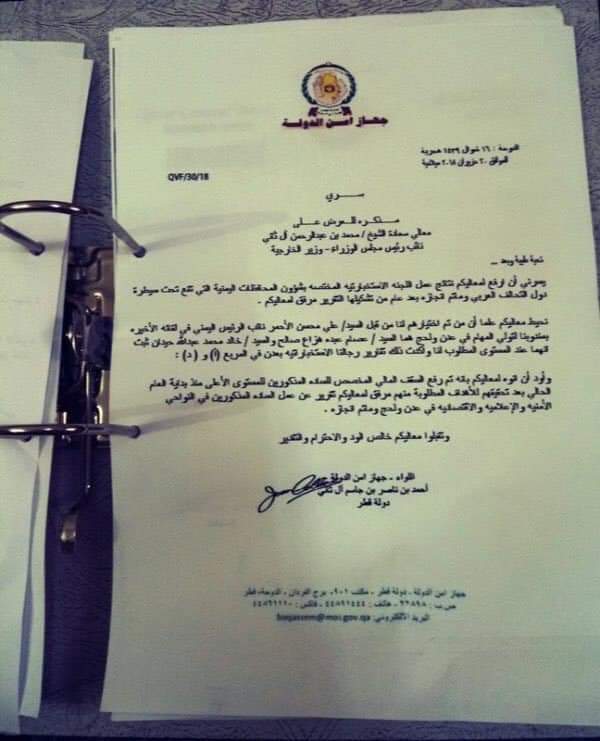 جهاز امن الدولة
الدوحة : ١٦ شوال ١٤٣٩ هجرية
الموافق ٢٠ حزيران ٢٠١٨ ميلادية
QVF/30/18
سري
مذكرة للعرض على
معالي سعادة الشيخ / محمد بن عبدالرحمن آل ثاني
نائب رئيس مجلس الوزراء - وزير الخارجية
تحية طيبة وبعد ..
يسرني أن ارفع لمعاليكم نتائج عمل اللجنه الاستخبارتيه المختصه بشؤون المحافظات اليمنية التي تقع تحت سيطرة
دول التحالف العربي وماتم انجازه بعد عام من تشكيلها التقرير مرفق لمعاليكم .
نحيط معاليكم علما أن من تم اختيارهم لنا من قبل السيد/ علي محسن الأحمر نائب الرئيس اليمني في لقائه الأخيره
بمندوبنا لتولي المهام في عدن ولحج هما السيد / عصام عبده هزاع صالح والسيد / خالد محمد عبدالله حيدان ثبت
انهما عند المستوى المطلوب لنا وأكدت ذلك تقارير رجالنا الاستخباراتيه بعدن في المربع (أ) و ( د) :
وأود أن انوه لمعاليكم بانه تم رفع السقف المالي المخصص للساده المذكورين للمستوى الأعلى منذ بداية العام
الحالي بعد تحقيقهم للأهداف المطلوبة منهم مرفق لمعاليكم تقرير عن عمل الساده المذكورين في النواحي
الأمنيه والإعلاميه والاقتصاديه في عدن ولحج وماتم انجازه .
وتقبلوا معاليكم خالص الود والاحترام والتقدير
اللواء - جهاز امن الدولة
أحمد بن ناصر بن جاسم آل ثاني
دولة قطر
جهاز امن الدولة - دولة قطر - مكتب ٩٠١ برج الفردان - الدوحة، قطر
البريد الالكتروني: